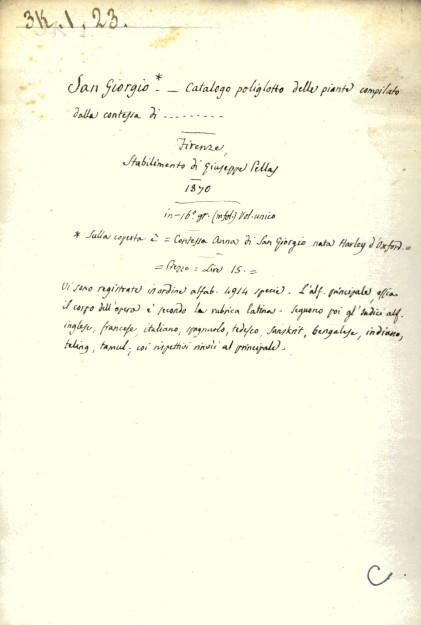 3K.1,23.
San Giorgio* - — Catalogo poliglotto delle piante compilato
dalla contessa di .........
Firenze,
Stabilimento di Giuseppe Pellas
1870
in-16° gr. Vol. unico
* Sulla coperta è = Contessa Anna di San Giorgio nata Harley d'Oxford. =
= Prezzo = Lire 15. =
Vi sono registrate in ordine alfab. 4914 specie. L'alf. principale, ossia
il corpo dell'opera è secondo la rubrica latina. Seguono poi gl'Indici alf.
inglese, francese, italiano, spagnuolo, tedesco, sanskrit, bengalese, indiano,
teling, tamul; coi rispettivi rinvii al principale.
C